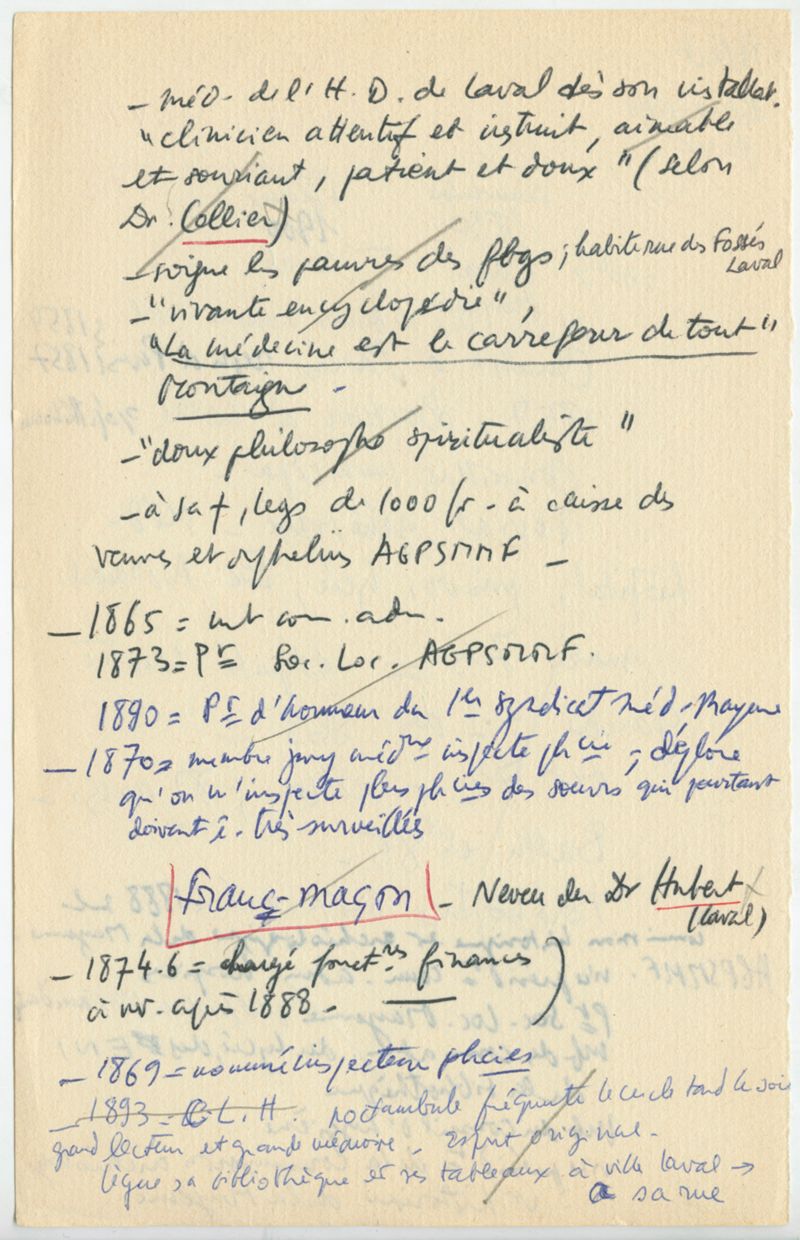 - méd. de l'H. D. de Laval dès son installat.
"clinicien attentif et instruit, aimable
et souriant, patient et doux" (selon
Dr. Collier)
- soigne les pauvres des fbgs ; habite rue des Fossés
Laval
- "vivante encyclopédie",
"La médecine est le carrefour de tout"
Montaigne -
- "doux philosophe spiritualiste"
- à sa †, legs de 1000 fr - à caisse des
veuves et orphelins AGPSMMF -
- 1865 = com. adm.
1873 = Pr Soc. Loc. AGPSMMF.
1890 = Pt d'honneur du 1er Syndicat Méd. Mayenne
- 1870 = membre jury méd inspecte phcie ; déplore
qu'on n'inspecte plus phcies des sœurs qui pourtant
doivent ê. très surveillées
Franc-maçon - Neveu du Dr Hubert
(Laval)
- 1874.6 = chargé fonct.res finances
à nv. après 1888 -
- 1869 = nommé inspecteur phcies
- 1893 = C L. H noctambule fréquente le cercle tard le soir
grand lecteur et grande mémoire - esprit original -
lègue sa bibliothèque et ses tableaux à ville Laval →
a sa rue